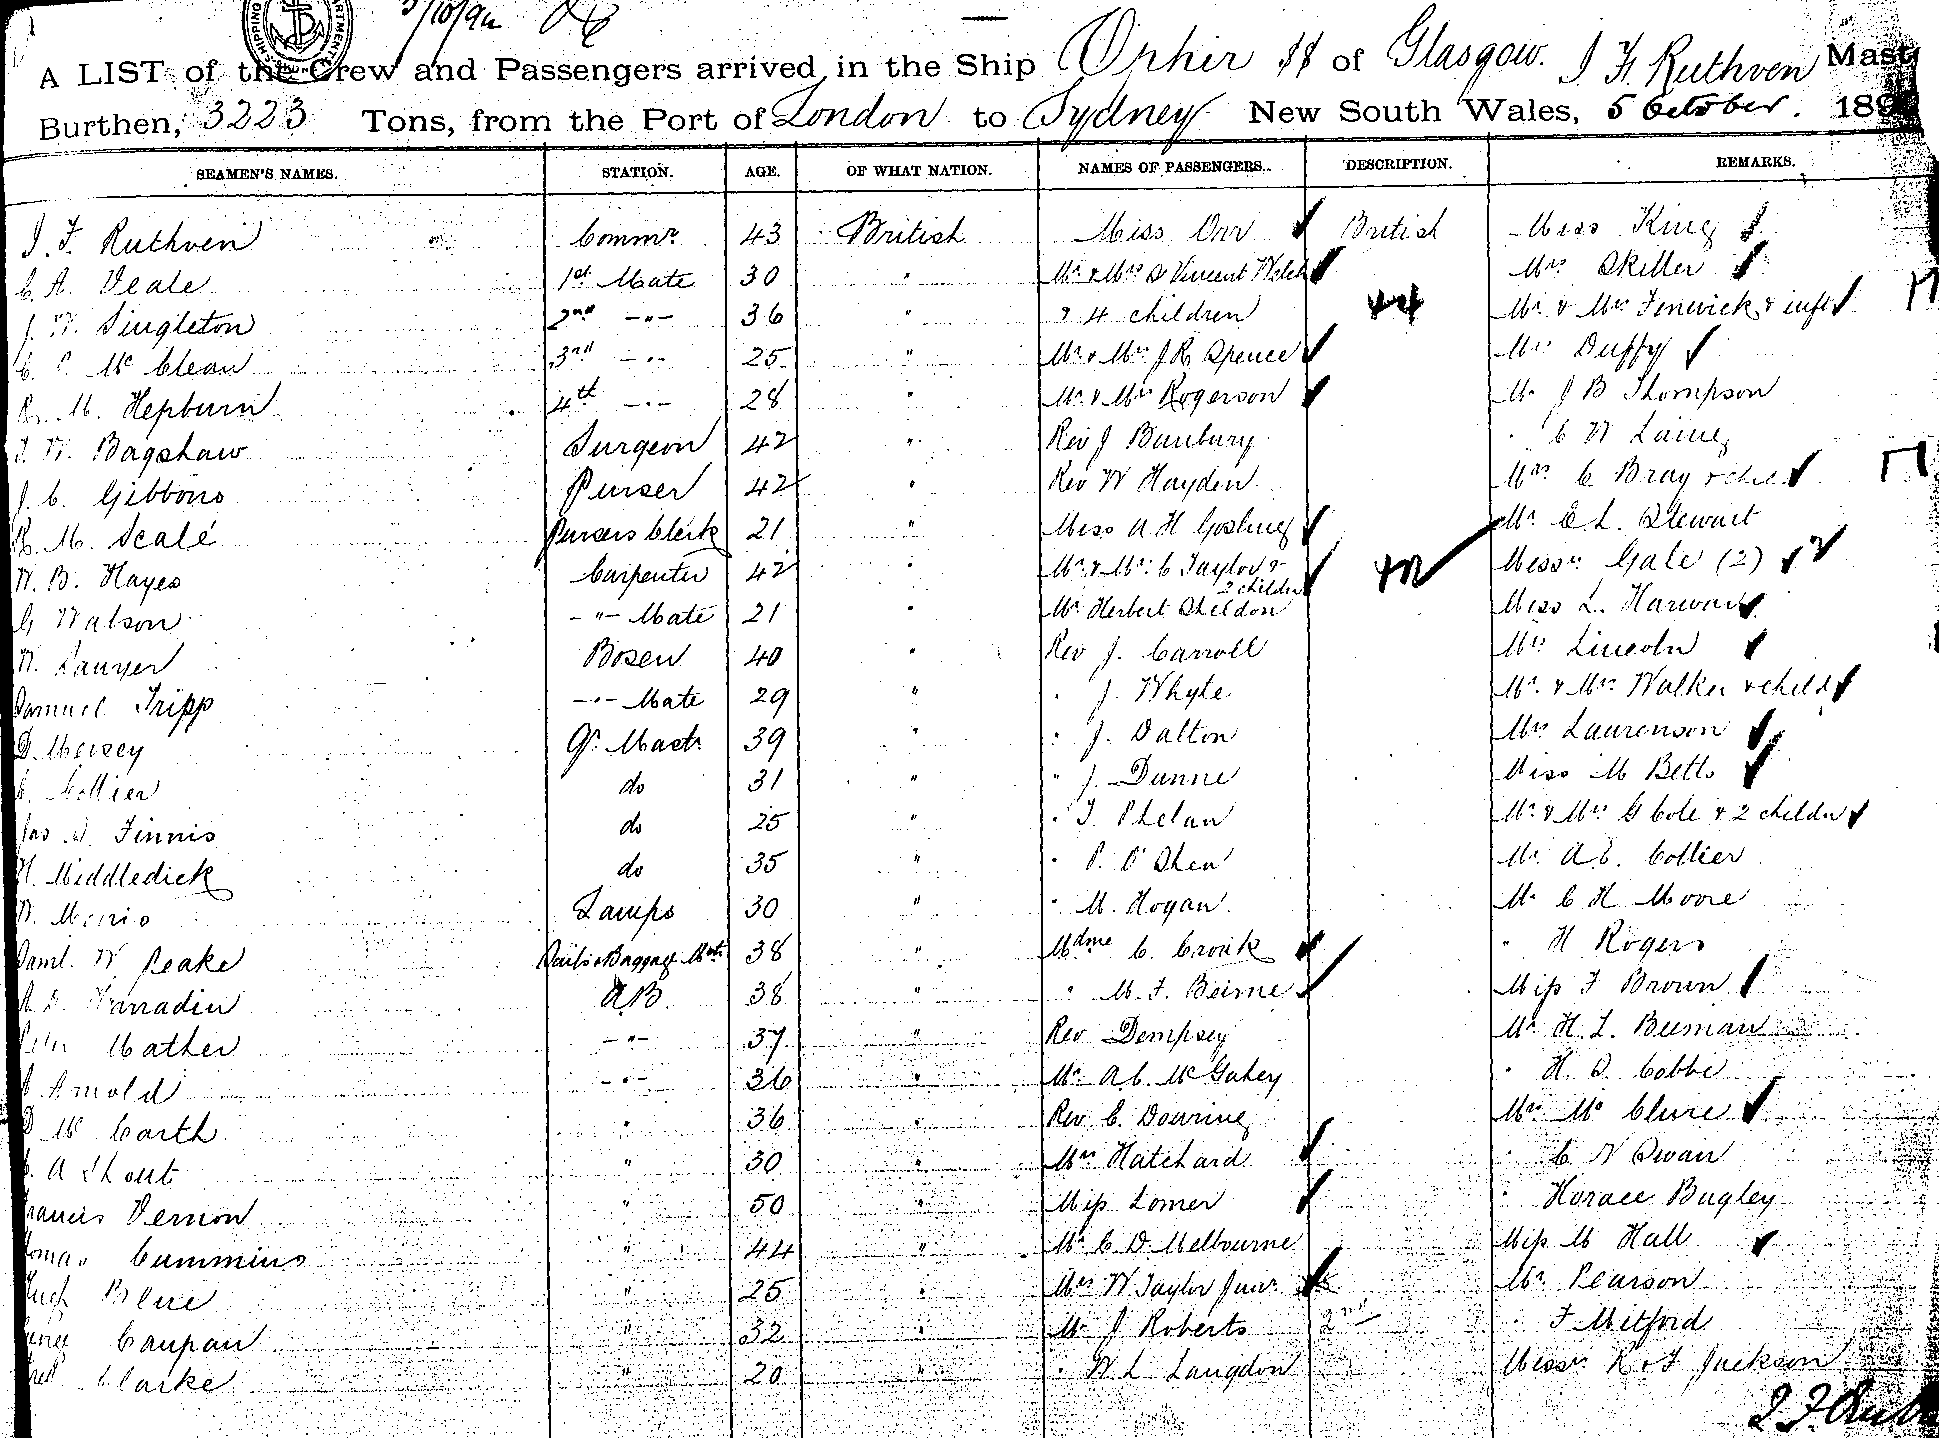 5/10/92
A LIST of the Crew and Passengers arrived in the Ship Orphir SS of Glasgow. J F Ruthven Mast
Burthen, 3223 Tons, from the Port of London to Sydney New South Wales, 5 October. 189
SEAMEN'S NAMES. STATION. AGE. OF WHAT NATION. NAMES OF PASSENGERS. DESCRIPTION. REMARKS.
J. F. Ruthven Commr. 43 British Miss Orr British Miss King
C. A. Veale 1st Mate 30 " Mr & Mrs St Vincent Welch Mrs Skiller
J. W. Singleton 2nd -"- 36 " & 4 children Mr & Mrs Fenwick & inft
C. P. McClean 3rd -"- 25 " Mr & Mrs J R Spence Mrs Duffy
R. M. Hepburn 4th -"- 28 " Mr & Mrs Rogerson Mr J B Thompson
W. Bagshaw Surgeon 42 " Rev J Bunbury " C W Laing
J. C. Gibbons Purser 42 " Rev W Hayden Mrs C Bray & chd
R. M. Scale Pursers Clerk 21 " Miss A H Gosling Mr E L. Stewart
W. B. Hayes Carpenter 42 " Mr & Mrs C Taylor & 2 childn Messrs Gale (2)
G Watson -"- Mate 21 " Mr Herbert Sheldon Miss L. Harwar
W. Sawyer Bosen 40 " Rev J. Carroll Mrs Lincoln
Samuel Tripp -"- Mate 29 " " J. Whyte Mr. & Mrs Walker & child
D. Mersey Qr. Mastr 39 " " J. Dalton Mrs Laurenson
Collier do 31 " " J. Dunne Miss M Betts
Jas Finnis do 25 " " T Phelan Mr & Mrs G Cole & 2 childn
H. Middledick do 35 " " P. O'Shea Mr A E. Collier
W. Morris Lamps 30 " " M. Hogan Mr C H Moore
Saml. W Peake Baggage Mstr 38 " Mdme C. Cronk " H Rogers
Harradin A.B. 38 " " M. F. Beirne Miss F Brown
Peter Mather -"- 37 " Rev Dempsey Mr H. L. Beeman
Arnold -"- 36 " Mr A C. McGahey " H. S. Cobbe
D McCarth " 36 " Rev C. Dowling Mrs McClure
A Shout " 30 " Mrs Hatchard " C N Swan
Francis Vernon " 50 " Miss Lomer " Horace Bugley
Thomas Cummins " 44 " Mr C D Melbourne Miss M Hall
Hugh Blue " 25 " Mrs W Taylor Junr Mr Pearson
Caupan " 32 " Mr J Roberts 2nd " F Mitford
Clarke " 20 " " W L Langdon Messrs R & F Jackson